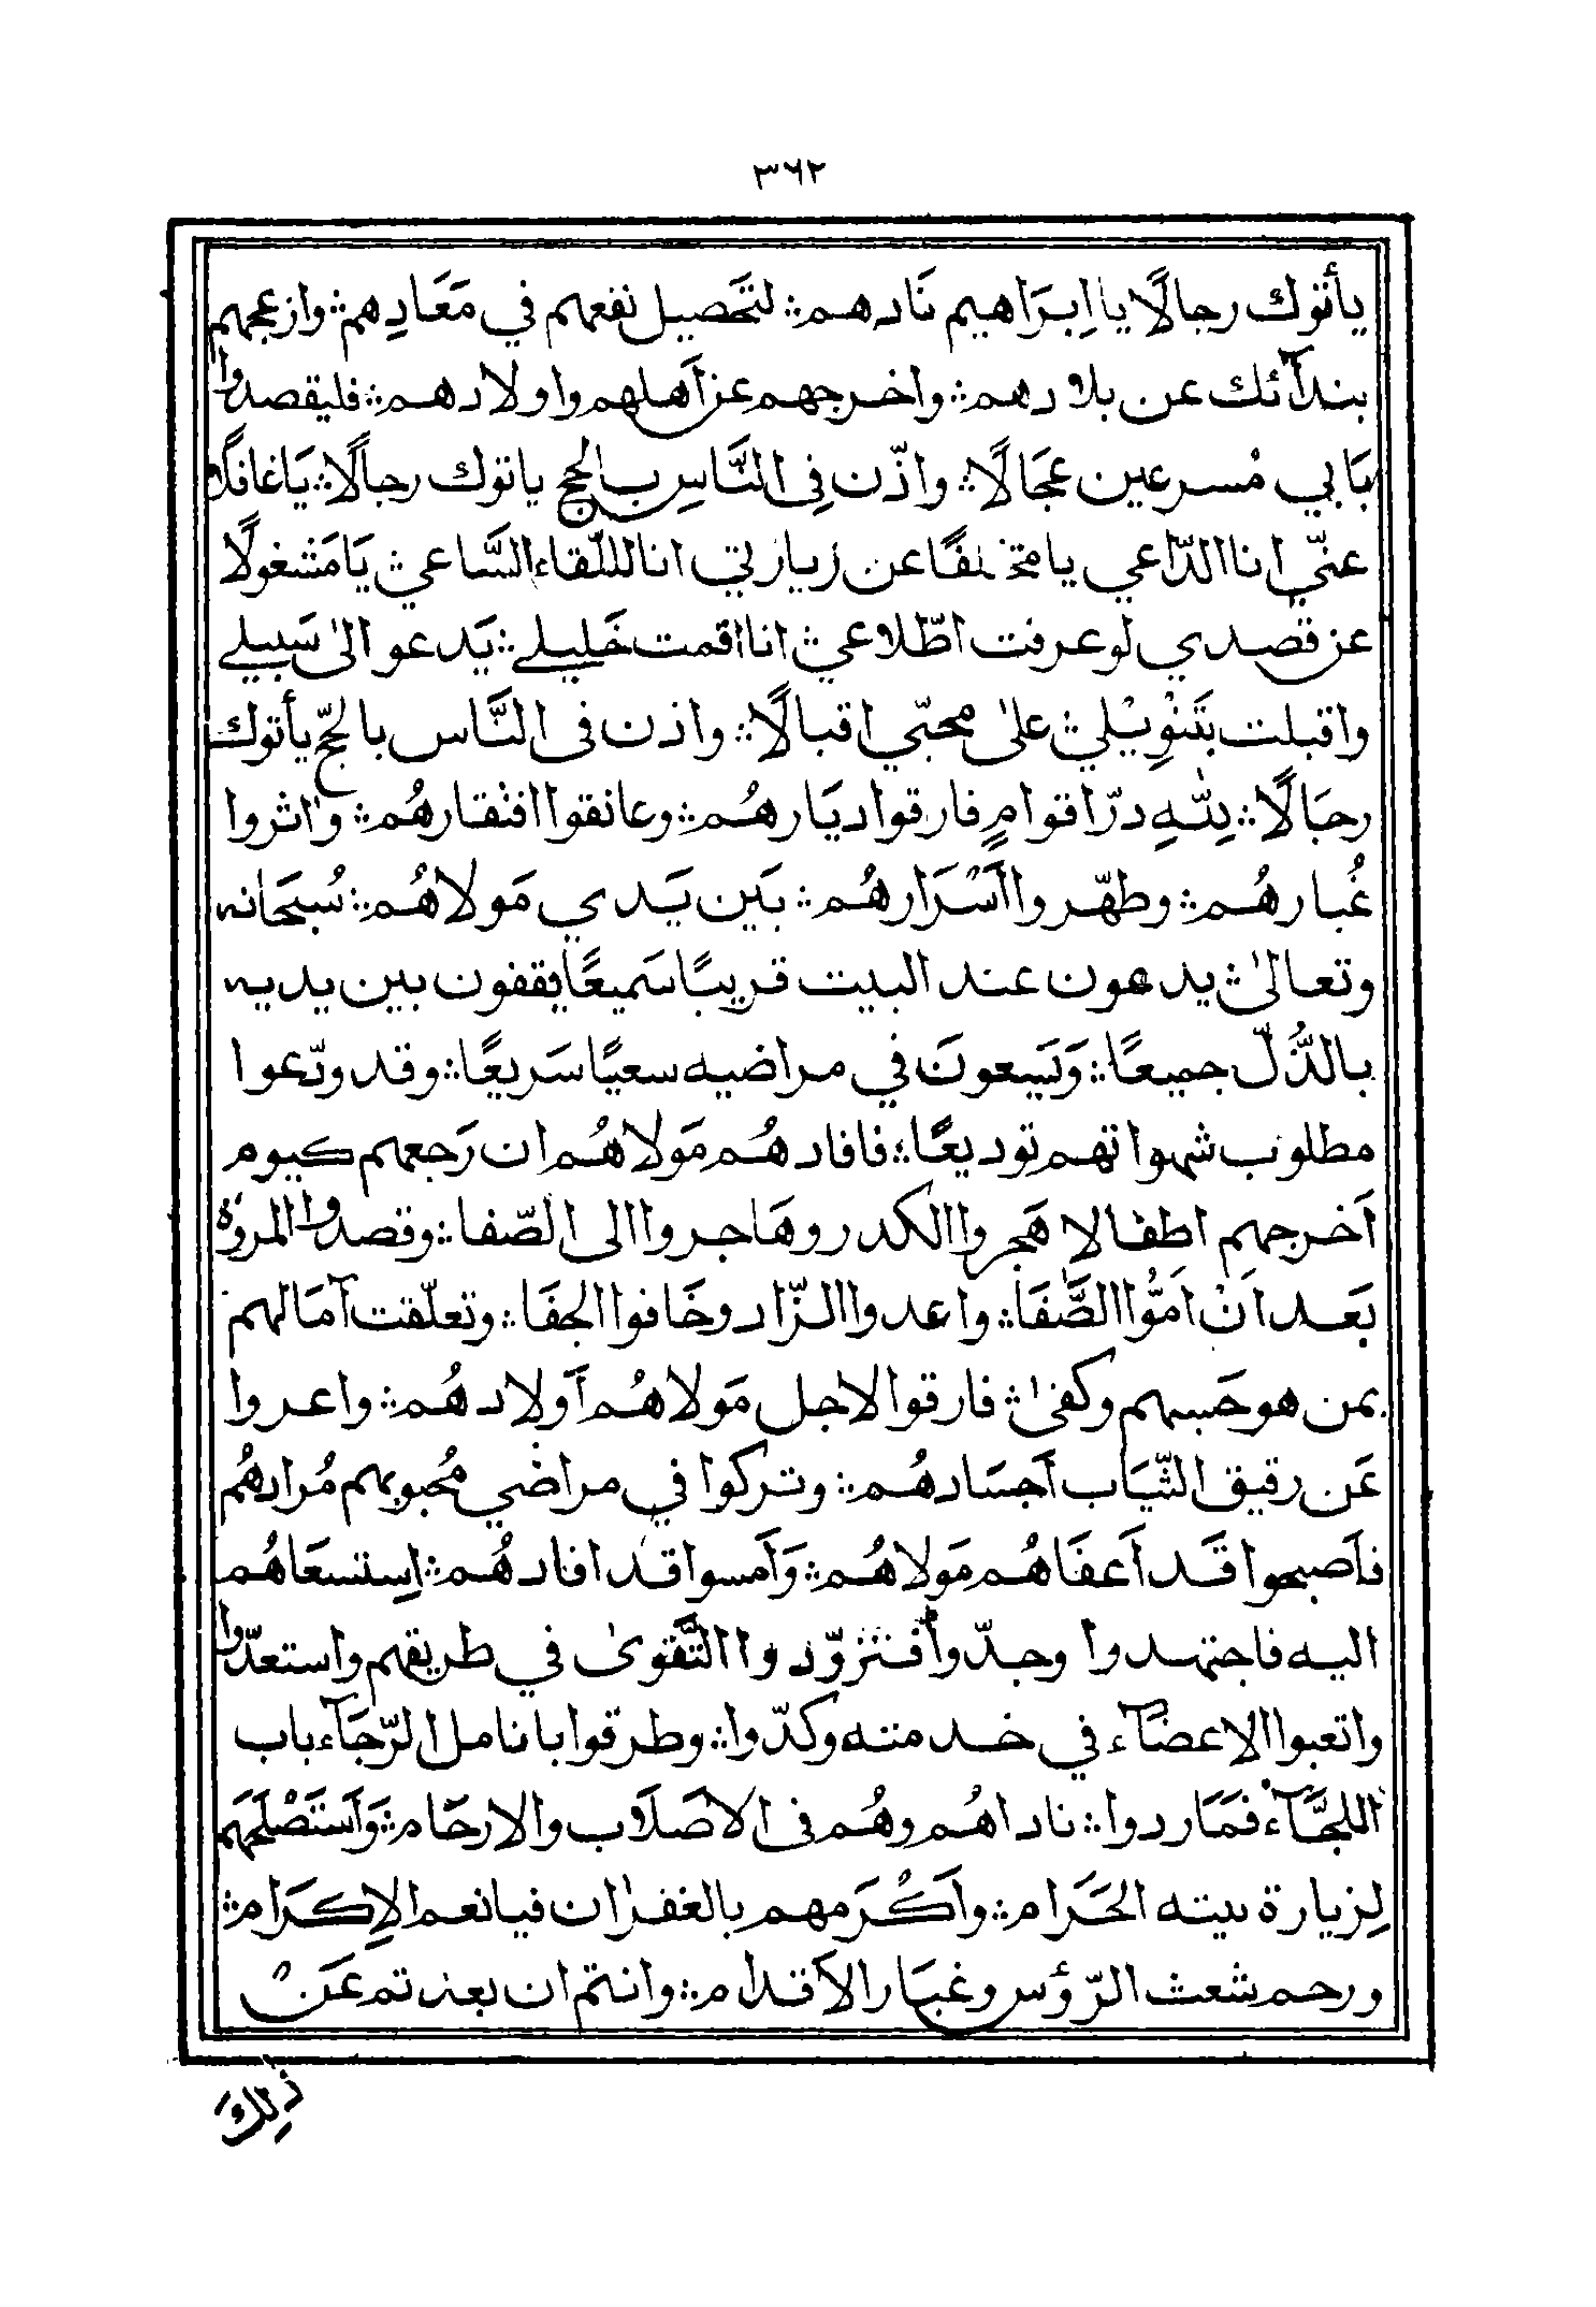 ٣٦٢
يأتوك رجالًا يا اِبرَاهيم نَادهم؞ لتَحصيل نفعهم في مَعَادِهم؞ وازعجهم
بندآئك عن بلادهم؞ واخرجهم عن اَهلهم واولادهم؞ فليقصدوا
بَابي مُسرعين عجَالًا؞ واذّن فِى النَّاسِ بالحج ياتوك رجالًا؞ يَاغافلًا
عنّي انا الدّاعي يا متخلفًا عن زيارتي انا للّقاء السَّاعي؞ يَا مَشغولًا
عن قصدي لو عرفت اطّلاعي؞ انا اقمت خَليلے؞ يَدعو الىٰ سَبيلے
واقبلت بتَنْوِيْلي؞ علىٰ محبّي اقبالًا؞ واذن فى النَّاس بالحجّ يأتوك
رجَالًا؞ لِلّٰهِ درّ اقوامٍ فارقوا ديَارهُم؞ وعانقوا افتقارهُم؞ وَاثروا
غُبارهُم؞ وطهّروا اَسْرَارهُم؞ بَين يَدي مَولاهُم؞ سُبحَانه
وتعالىٰ؞ يدعون عند البيت قريبًا سَميعًا يقفون بين يديه
بالذُّلّ جميعًا؞ وَيَسعونَ في مراضيه سعيًا سَريعًا؞ وقد ودّعوا
مطلوب شهواتهم توديعًا؞ فافادهُم مَولاهُم ان رَجعهم كيوم
اَخرجهم اطفالا هَجروا الكدر وهَاجروا الى الصّفا؞ وقصدوا المروَة
بَعد اَنْ اَمُّوا الصَّفَا؞ واعدوا الزّاد وخَافوا الجفَا؞ وتعلّقت آمَالهم
بمن هو حَسبهم وكفىٰ؞ فارقوا لاجل مَولاهُم اَولادهُم؞ واعروا
عَن رقيق الثّيَاب اَجسَادهُم؞ وتركوا في مراضي مُحبوبهم مُرادهُم
فاَصبحوا قَد اَعفَاهُم مَولاهُم؞ وَاَمسوا قد افادهُم؞ اِستسعَاهُم
اليه فاجتهدوا وجدّوا فتزوّدوا التَّقوىٰ في طريقهم واستعدّوا
واتعبوا الاعضآء في خدمته وكدّوا؞ وطرقوا بانامل الرّجَآء باب
اللجَّآء فمَا ردوا؞ ناداهُم وهُم فى الاَصلَاب والارحَام؞ وَاَستَصْلَحَهم
لِزيارة بيته الحَرَام؞ واَكْرَمهم بالغفران فيا نعم الاِكرَام؞
ورحم شعث الرّؤس وغبَار الاَقدام؞ وانتم ان بعدتم عَنْ
ذٰلِكَ